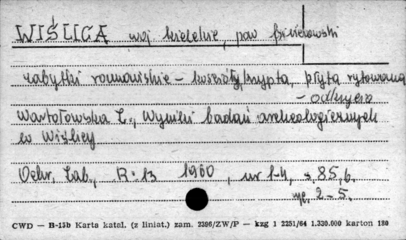 WIŚLICA woj kieleckie, pow
zabytki romańskie – kościoły, krypta, płyta rytowana
– odkrycie
Wartołowska Z., Wyniki badań archeologicznych
w Wiślicy
Ochr. Zab., R. 13 1960, nr 1-4, s. 85,6.
ryc. 2-5.
CWD — B-15b Karta katal. (z liniat.) zam. 2286/ZW/P — kzg 1 2251/64 1.330.000 karton 180